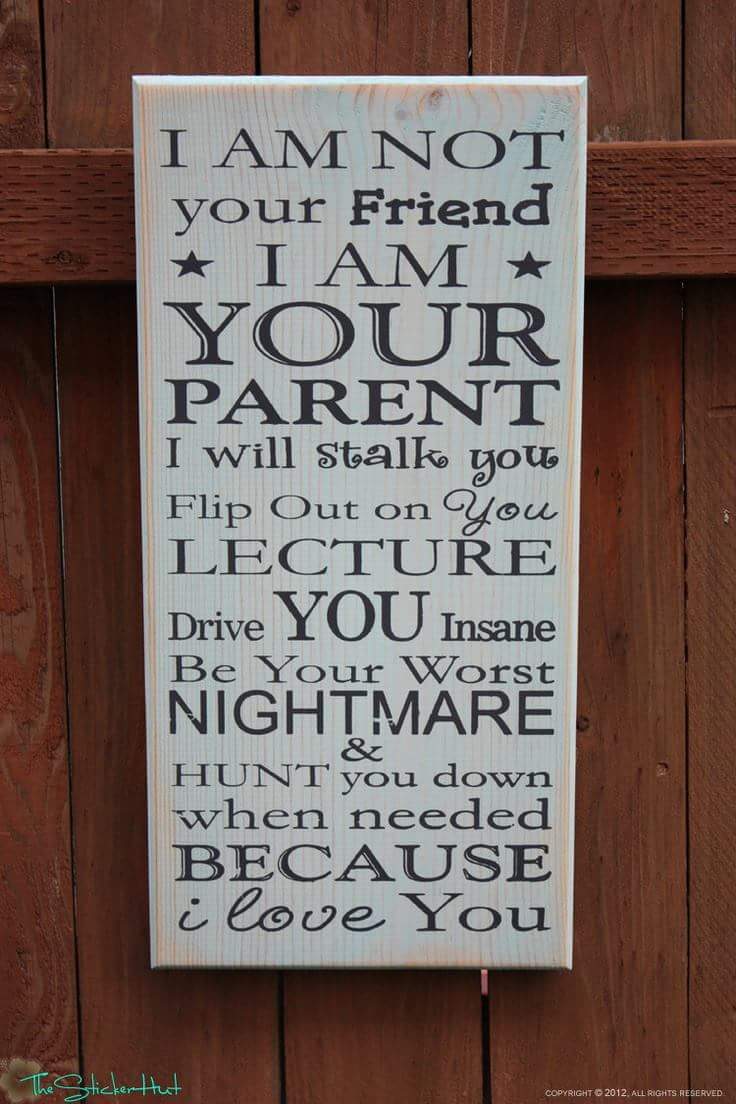 I AM NOT
your Friend
★ I AM ★
YOUR
PARENT
I will stalk you
Flip Out on You
LECTURE
Drive YOU Insane
Be Your Worst
NIGHTMARE
&
HUNT you down
when needed
BECAUSE
i love You
TheStickerHut
COPYRIGHT © 2012, ALL RIGHTS RESERVED.